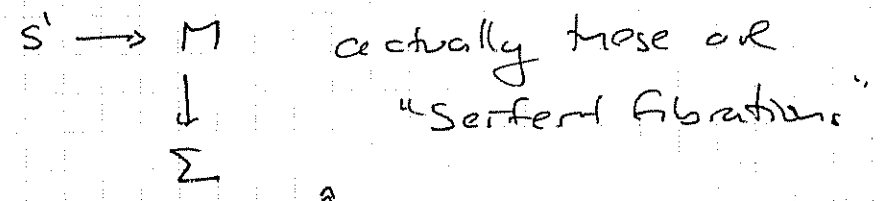 S¹ → M actually those are
↓ "Seifert fibrations"
Σ